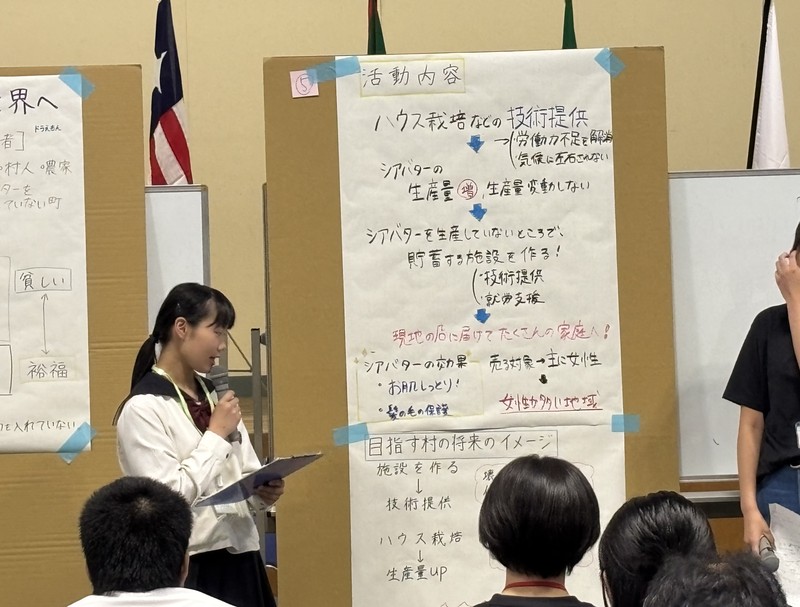 界へ
ドラえもん
者]
村人 農家
ターを
ていない町
貧しい
裕福
を入れていない
⑤
活動内容
ハウス栽培などの技術提供
→ ・労働力不足を解消
・気候に左右されない
シアバターの
生産量 増、生産量変動しない
シアバターを生産していないところで、
貯蓄する施設を作る!
・技術提供
・就労支援
現地の店に届けてたくさんの家庭へ!
シアバターの効果
・お肌しっとり!
・髪の毛の保護
売る対象→主に女性
女性が多い地域
目指す村の将来のイメージ
施設を作る
↓
技術提供
ハウス栽培
↓
生産量UP